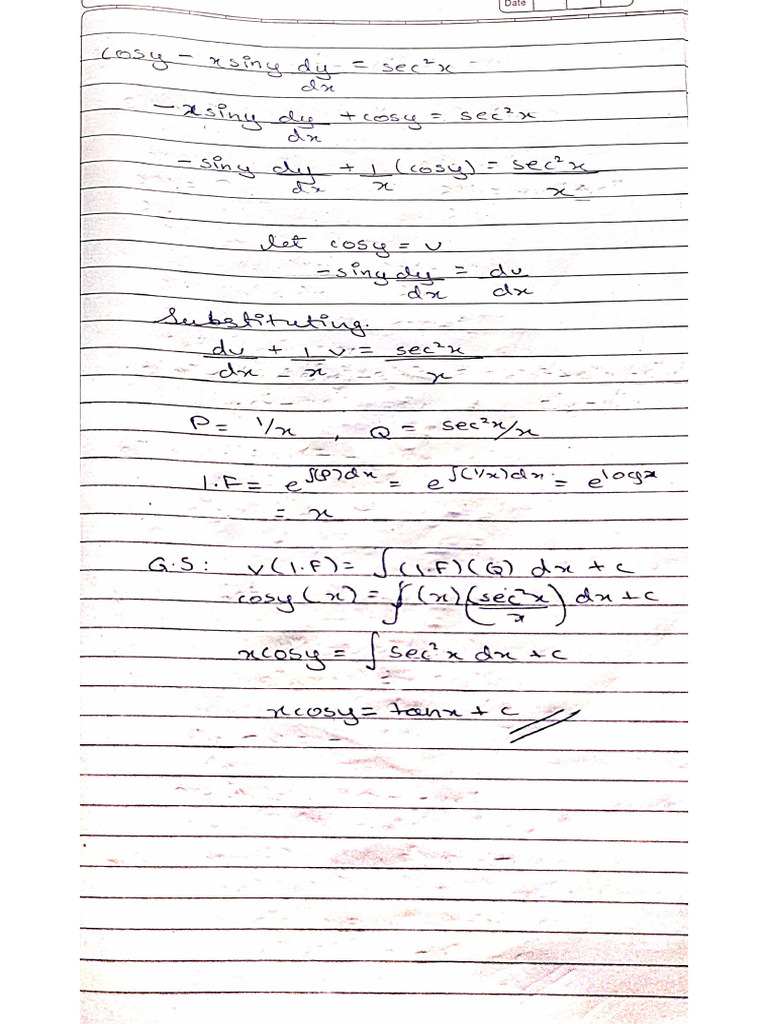 Date
cosy - xsiny dy/dx = sec²x
-xsiny dy/dx + cosy = sec²x
-siny dy/dx + 1/x (cosy) = sec²x/x
let cosy = v
-siny dy/dx = dv/dx
Substituting.
dv/dx + 1/x v = sec²x/x
P = 1/x , Q = sec²x/x
I.F = e^∫(P)dx = e^∫(1/x)dx = e^logx
= x
G.S: v(I.F) = ∫(I.F)(Q) dx + c
cosy(x) = ∫(x)(sec²x/x) dx + c
xcosy = ∫sec²x dx + c
xcosy = tanx + c